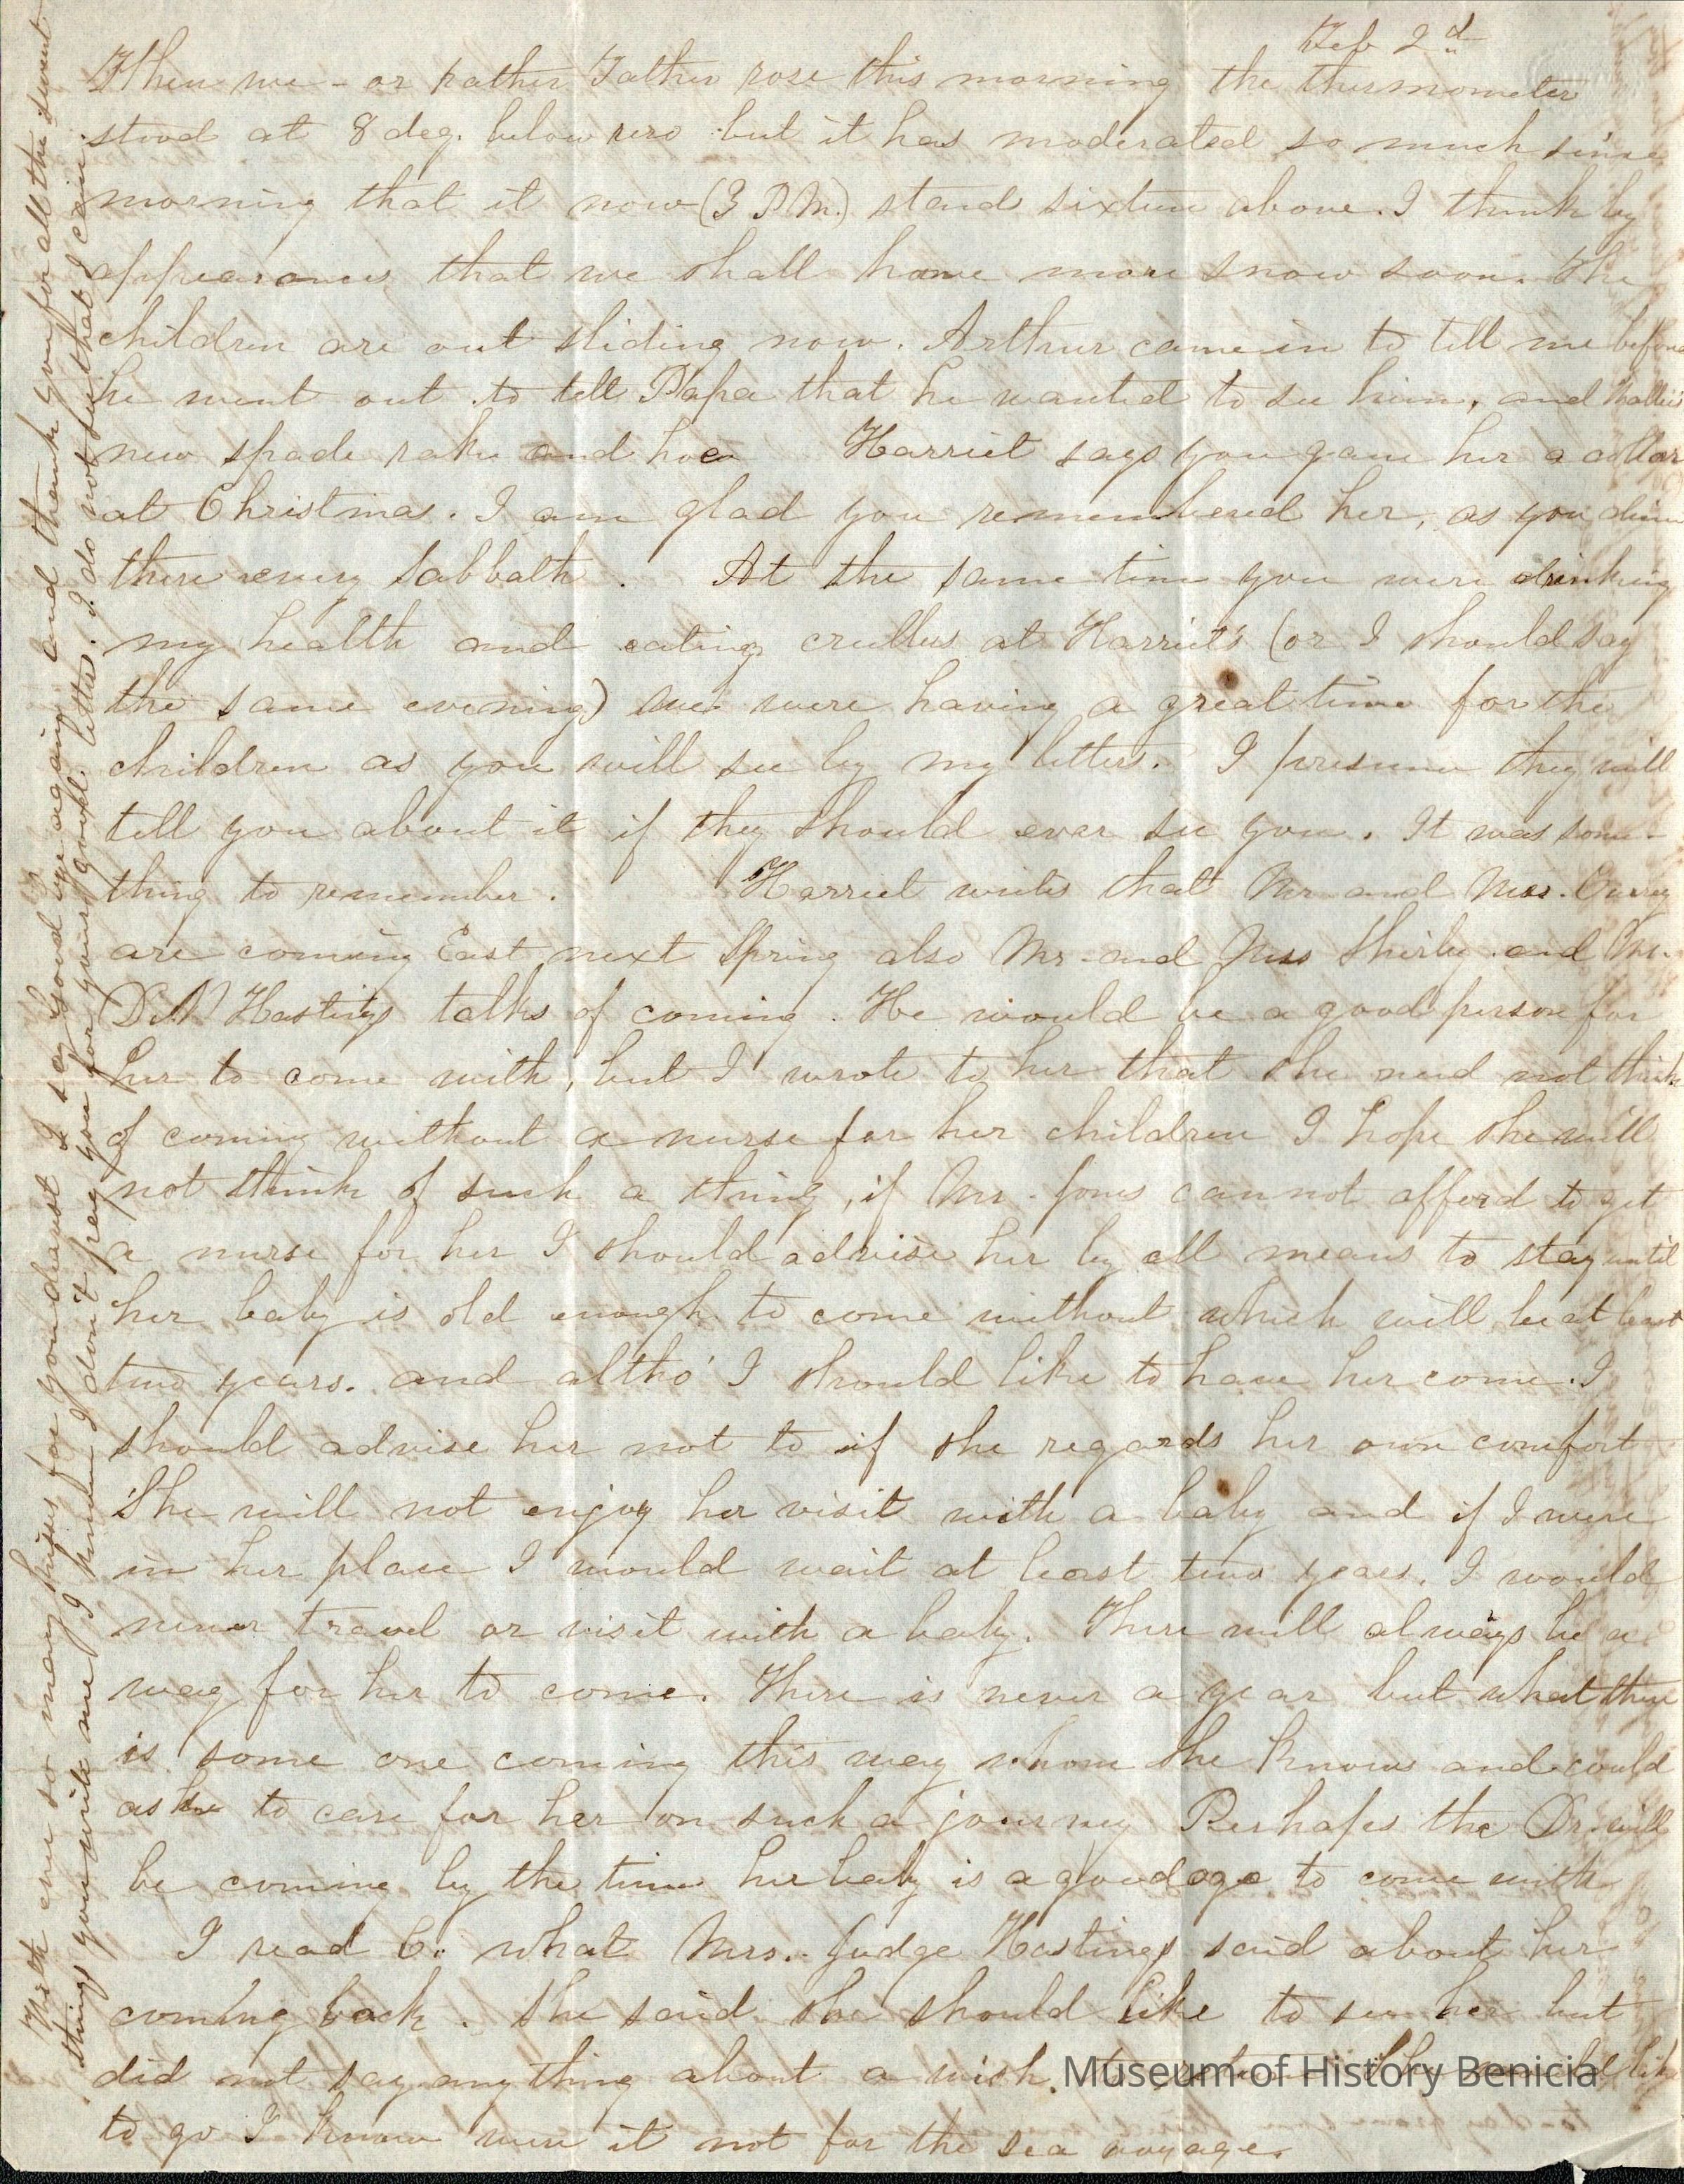 Feb 2d
When we - or rather Father rose this morning the thermometer
stood at 8 deg. below zero but it has moderated so much since
morning that it now (3 P.M.) stand sixteen above. I think by
appearances that we shall have more snow soon. The
children are out sliding now. Arthur came in to tell me before
he went out to tell Papa that he wanted to see him, and
new spade rake and hoe Harriet says you gave her a collar
at Christmas. I am glad you remembered her, as you dine
there every Sabbath. At the same time you were drinking
my health and eating crullers at Harriet's (or I should say
the same evening) we were having a great time for the
children as you will see by my letters. I presume they will
tell you about it if they should ever see you. It was some-
thing to remember. Harriet writes that Mr and Mrs.
are coming East next Spring also Mr. and Miss Shirley and Mr.
D.N Hastings talks of coming. He would be a good person for
her to come with, but I wrote to her that she need not think
of coming without a nurse for her children I hope she will
not think of such a thing, if Mr. Jones cannot afford to get
a nurse for her I should advise her by all means to stay until
her baby is old enough to come without which will be at least
two years. and altho' I should like to have her come. I
should advise her not to if she regards her own comfort
She will not enjoy her visit with a baby and if I were
in her place I would wait at least two years. I would
never travel or visit with a baby. There will always be a
way for her to come. There is never a year but what there
is some one coming this way whom she knows and could
ask to care for her on such a journey Perhaps the Dr. will
be coming by the time her baby is a good age to come with
I read C. what Mrs. Judge Hastings said about her
coming back. She said she should like to see her but
did not say anything about a wish. like
to go I know were it not for the sea voyage.
With ever so many kisses for you dearest I say Good bye again and thank you for all the sweet
things you write me I know I don't pay you for your good letters. I do not feel that I can.
Museum of History Benicia